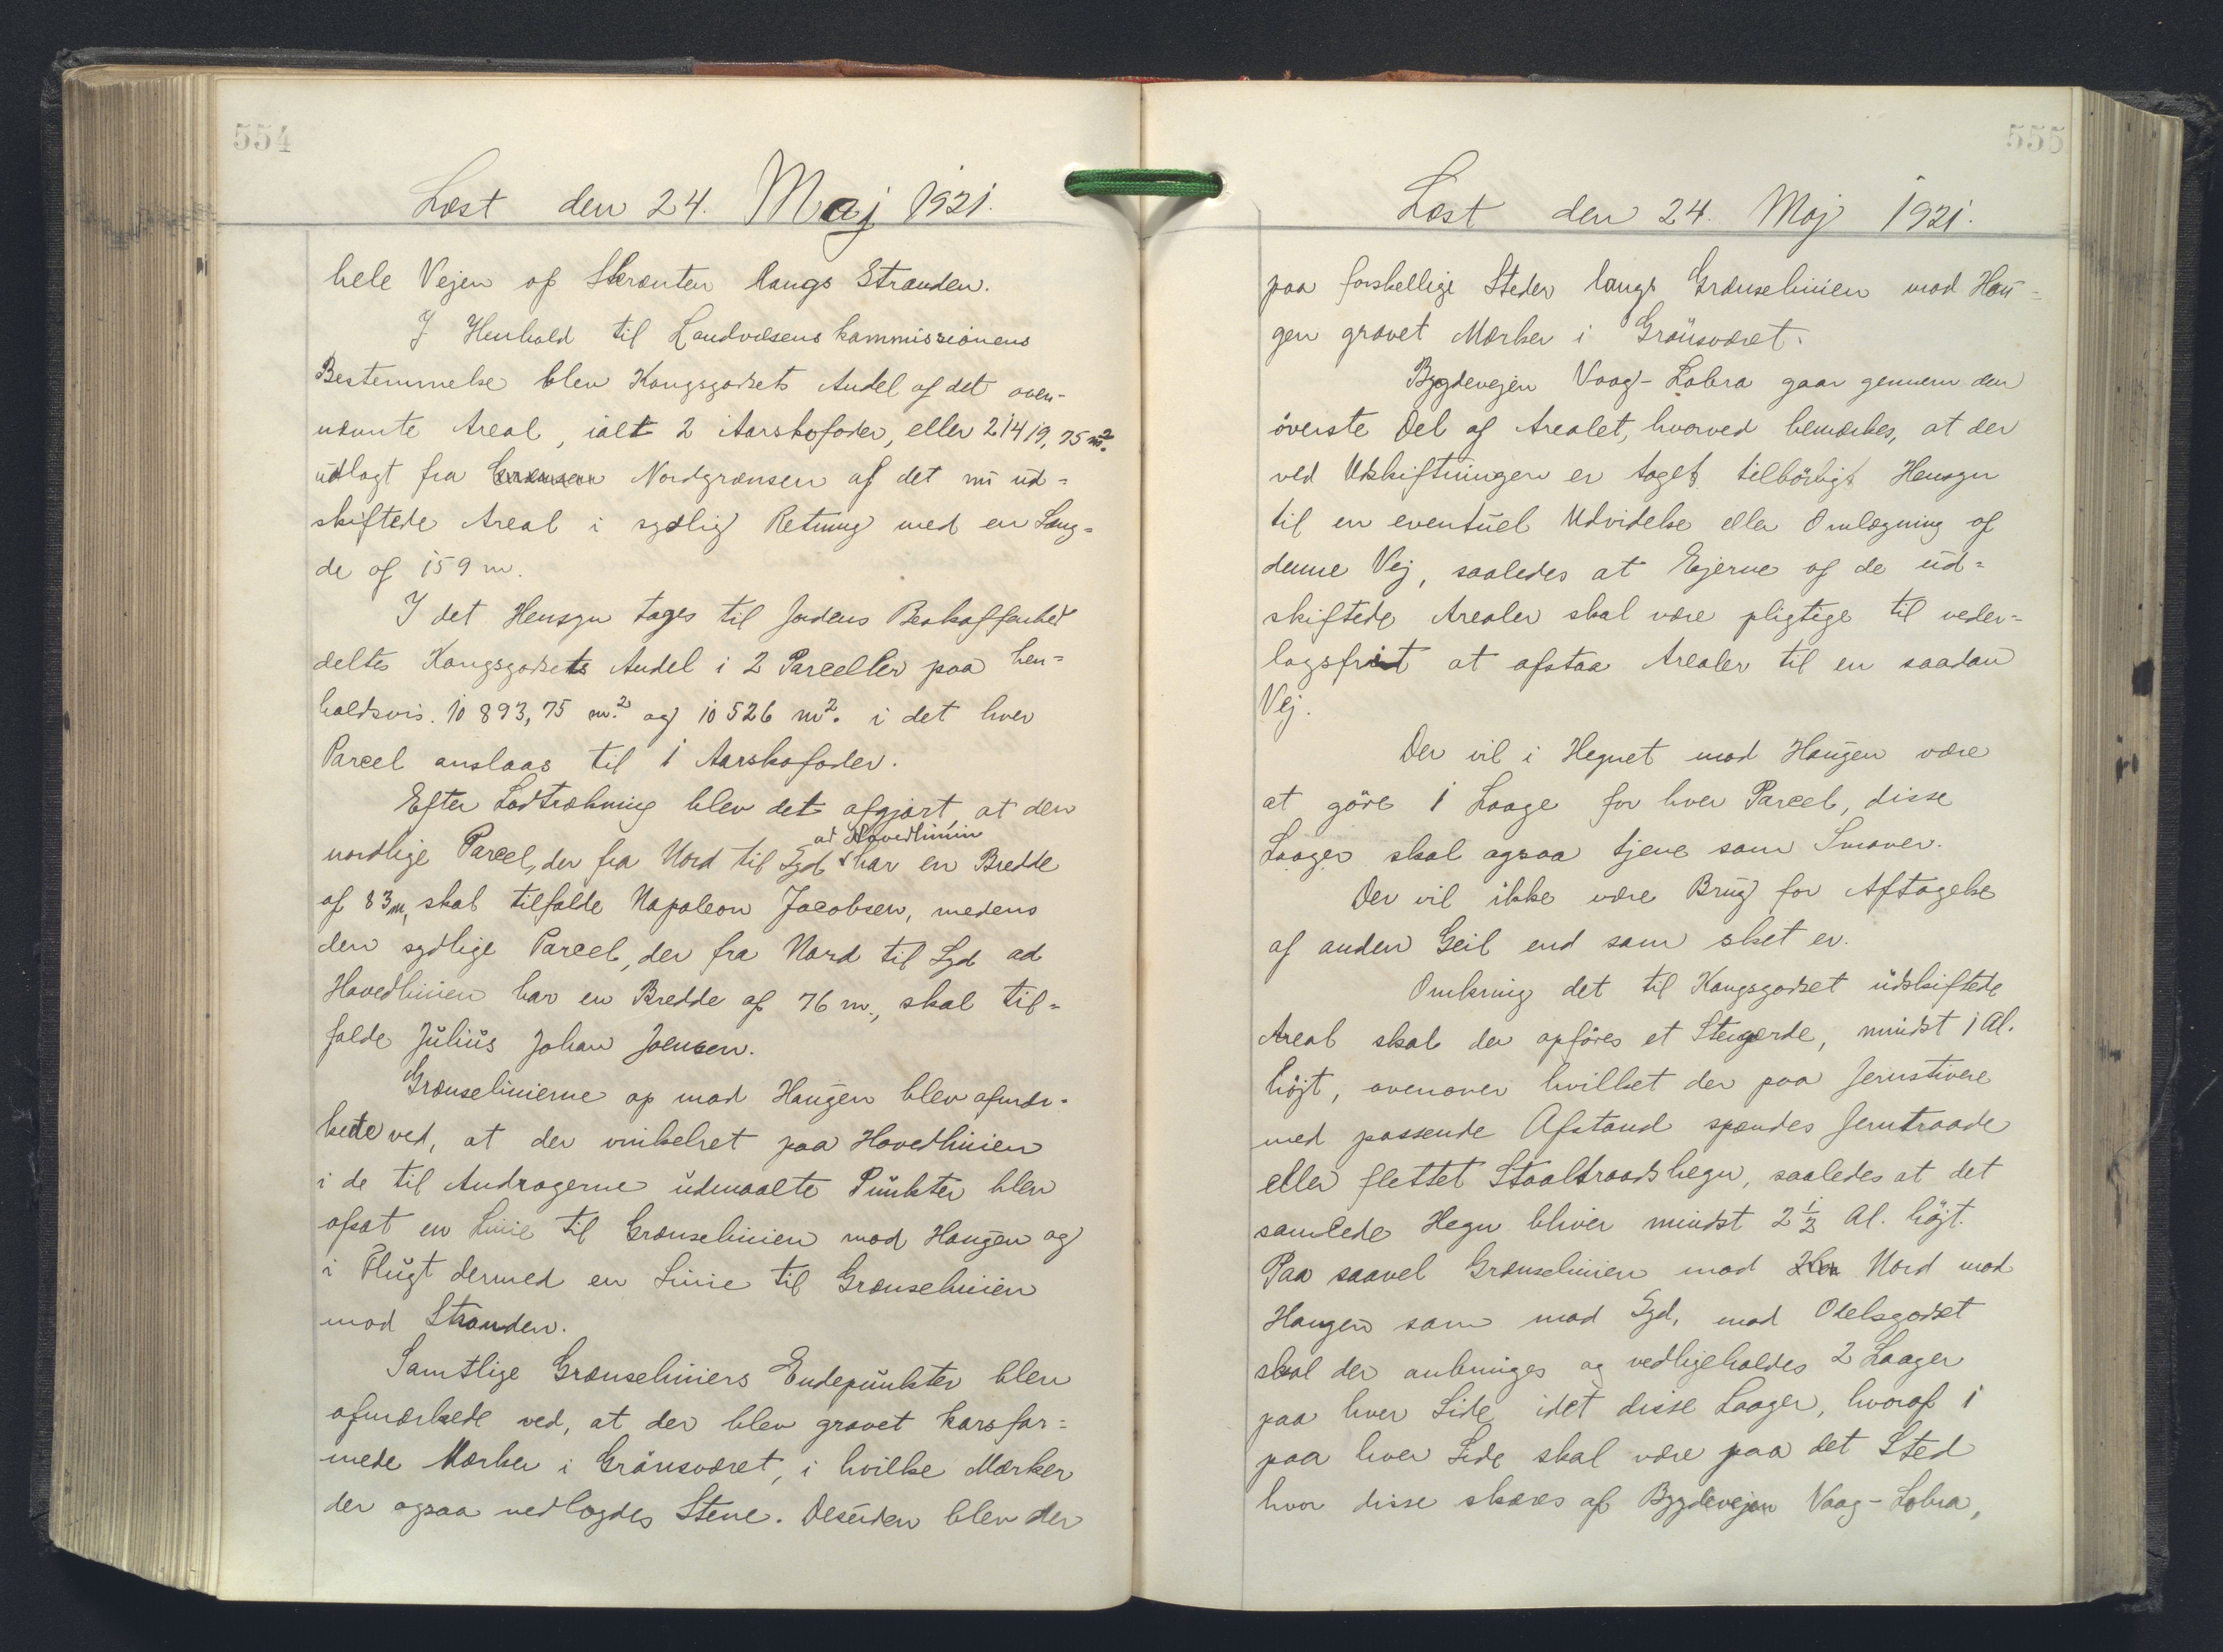 554
Læst den 24. Maj 1921.
hele Vejen af Skrænten langs Stranden.
I Henhold til Landvæsenskommissionens
Bestemmelse blev Kongsgodsets Andel af det oven-
nævnte Areal, ialt 2 Aarskofoder, eller 21419,75 m²
udlagt fra Grænsen Nordgrænsen af det nu ud=
skiftede Areal i sydlig Retning med en Læng=
de af 159 m.
I det Hensyn tages til Jordens Beskaffenhed
deltes Kongsgodsets Andel i 2 Parceller paa hen=
holdsvis. 10 893,75 m.² og 10 526 m². i det hver
Parcel anslaas til 1 Aarskofoder.
Efter Lodtrækning blev det afgjort, at den
ad Hovedlinien
nordlige Parcel, der fra Nord til Syd har en Bredde
af 83 m, skal tilfalde Napoleon Jacobsen, medens
den sydlige Parcel, der fra Nord til Syd ad
Hovedlinien har en Bredde af 76 m., skal til=
falde Julius Johan Joensen.
Grænselinierne op mod Haugen blev afmær-
kede ved, at der vinkelret paa Hovedlinien
i de til Andragerne udmaalte Punkter blev
afsat en Linie til Grænselinien mod Haugen og
i Flugt dermed en Linie til Grænselinien
mod Stranden.
Samtlige Grænseliniers Endepunkter blev
afmærkede ved, at der blev gravet korsfor=
mede Mærker i Grønsværet, i hvilke Mærker
der ogsaa nedlagdes Stene. Desuden blev der
555
Læst den 24. Maj 1921.
paa forskellige Steder langs Grænselinien mod Hau=
gen gravet Mærker i Grønsværet.
Bygdevejen Vaag-Lobra gaar gennem den
överste Del af Arealet, hvorved bemærkes, at der
ved Udskiftningen er taget tilbörligt Hensyn
til en eventuel Udvidelse eller Omlægning af
denne Vej, saaledes at Ejerne af de ud=
skiftede Arealer skal være pligtige til veder=
lagsfrit at afstaa Arealer til en saadan
Vej.
Der vil i Hegnet mod Haugen være
at göre 1 Laage for hver Parcel, disse
Laager skal ogsaa tjene som Smover.
Der vil ikke være Brug for Aftagelse
af anden Geil end som sket er.
Omkring det til Kongsgodset udskiftede
Areal skal der opföres et Stengærde, mindst 1 Al.
höjt, ovenover hvilket der paa Jernstivere
med passende Afstand spændes Jerntraade
eller flettet Staaltraadshegn, saaledes at det
samlede Hegn bliver mindst 2 1/2 Al. höjt.
Paa saavel Grænselinien mod Nord mod
Haugen som mod Syd, mod Odelsgodset
skal der anbringes og vedligeholdes 2 Laager
paa hver Side idet disse Laager, hvoraf 1
paa hver Side skal være paa det Sted
hvor disse skæres af Bygdevejen Vaag-Lobra,